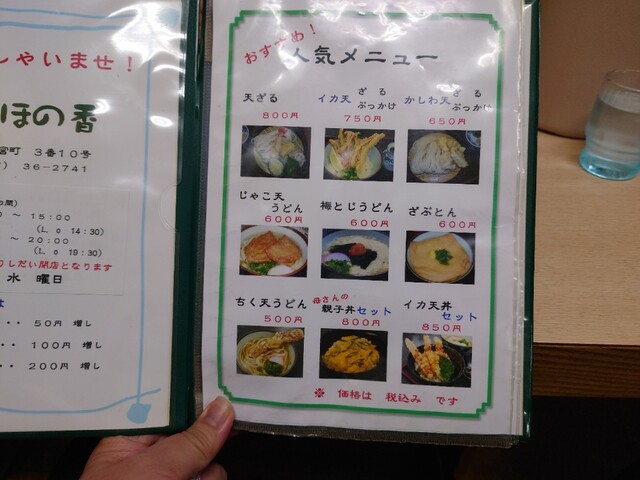 しゃいませ！
ほの香
宮町 3番10号
36-2741
の間)
～ 15:00
(L. o 14:30)
～ 20:00
(L. o 19:30)
りしだい閉店となります
水 曜日
は
・・ 50円 増し
・・ 100円 増し
・・ 200円 増し
おすすめ！
人気メニュー
天ざる
800円
イカ天 ざる
ぶっかけ
750円
かしわ天 ざる
ぶっかけ
650円
じゃこ天
うどん
600円
梅とじうどん
600円
ざぶとん
600円
ちく天うどん
500円
母さんの
親子丼セット
800円
イカ天丼
セット
850円
※ 価格は 税込み です